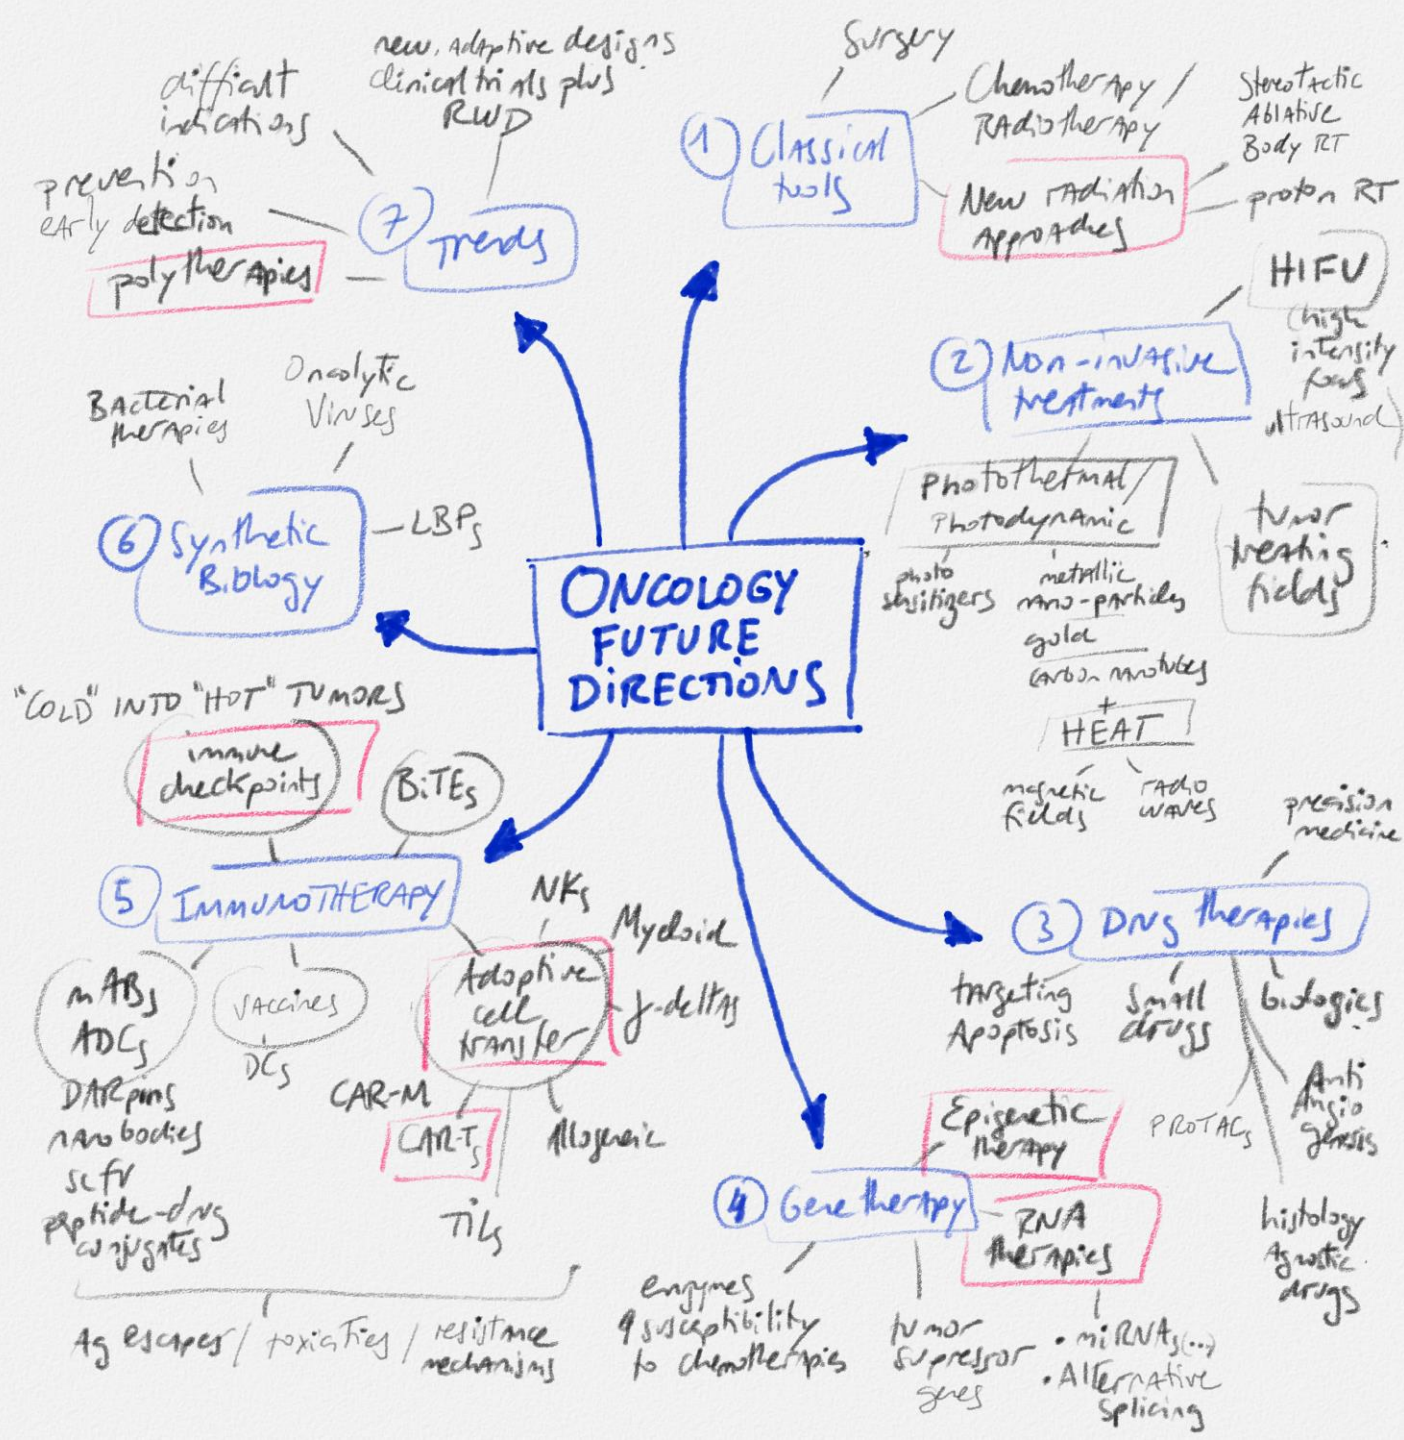 ONCOLOGY
FUTURE
DIRECTIONS
1 Classical
tools
Surgery
Chemotherapy /
Radiotherapy
New radiation
approaches
Stereotactic
Ablative
Body RT
proton RT
2 Non-invasive
treatments
HIFU
(high
intensity
focus
ultrasound)
Photothermal/
Photodynamic
photo
sensitizers
metallic
nano-particles
gold
carbon nanotubes
+
HEAT
magnetic
fields
radio
waves
tumor
treating
fields
3 Drug therapies
precision
medicine
targeting
Apoptosis
small
drugs
biologics
PROTACs
Anti
Angio
genesis
histology
Agnostic
drugs
4 Gene therapy
Epigenetic
therapy
RNA
therapies
• miRNAs(...)
• Alternative
splicing
tumor
supressor
genes
enzymes
susceptibility
to chemotherapies
5 IMMUNOTHERAPY
"COLD" INTO "HOT" TUMORS
immune
checkpoints
BiTEs
mABs
ADCs
DARpins
nanobodies
scfv
peptide-drug
conjugates
vaccines
DCs
Adoptive
cell
transfer
NKs
Myeloid
γ-deltas
CAR-M
CAR-Ts
TILs
Allogeneic
Ag escapes / toxicities / resistance
mechanisms
6 Synthetic
Biology
Bacterial
therapies
Oncolytic
Viruses
LBPs
7 Trends
difficult
indications
new, adaptive designs
clinical trials plus
RWD
prevention
early detection
polytherapies